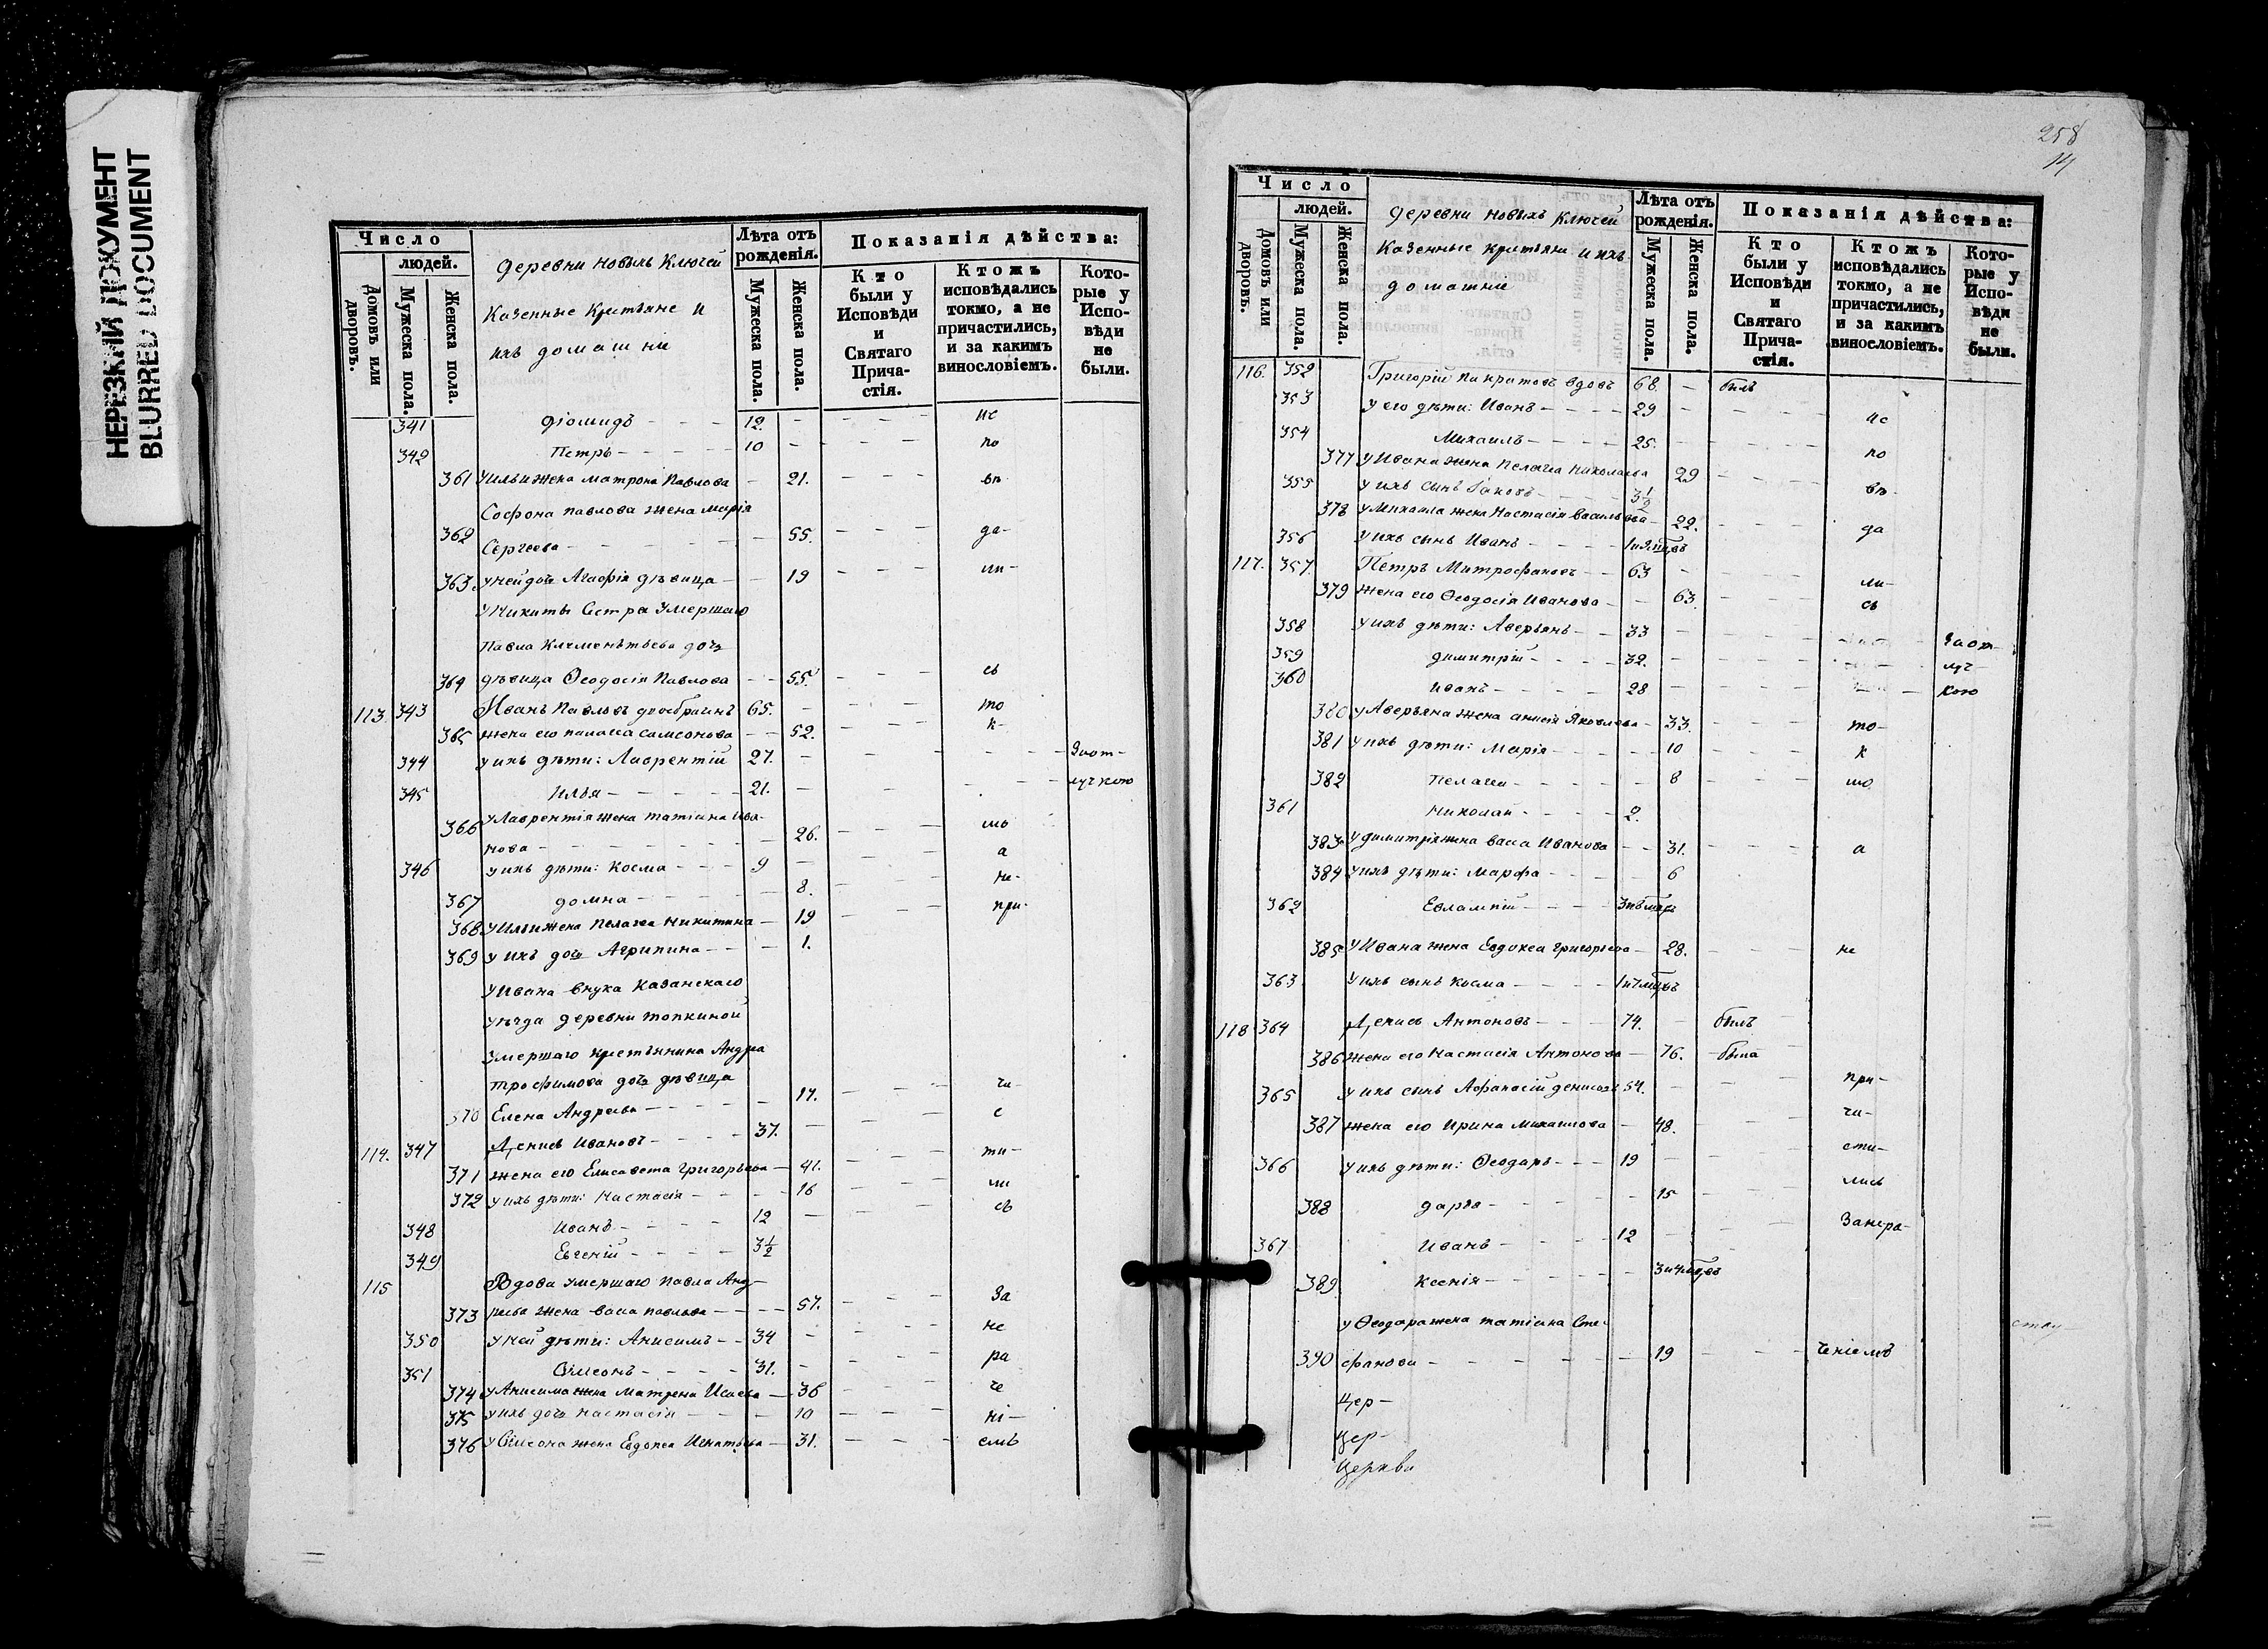 НЕРЕЗКИЙ ДОКУМЕНТ
BLURRED DOCUMENT
Число
людей.
Домовъ или дворовъ.
Мужеска пола.
Женска пола.
деревни Новыхъ Ключей
Казенные Крестьяне и
ихъ домашни
Лѣта отъ рожденія.
Мужеска пола.
Женска пола.
Показанія дѣйства:
Кто были у Исповѣди и Святаго Прича-стія.
Ктожъ исповѣдались токмо, а не причастились, и за какимъ винословіемъ.
Кото-рые у Испо-вѣди не были.
341 Діомидъ - - - 12. - - - - ис
342 Петръ - - - - 10 - - - - по
361 У Ильи жена Матрона Павлова - 21. - - - вѣ
Софона Павлова жена Марія
362 Сергеева - - - - - 55. - - - да-
363. у ней дочь Агафія дѣвица - - 19 - - - ли-
У Никиты Сестра Умершаго
Павла Клементьева дочь
364 дѣвица Ѳеодосія Павлова - - 55. - - - сь
113. 343 Иванъ Павловъ 65. - - - - то
365 жена его Самсонова - - 52. - - - к-
344 у ихъ дѣти: Лаврентій 27. - - - - Заот-
345 Илья - - - - - 21. - - - - лучкою
366 у Лаврентія жена Татіана Ива-
нова - - - - - - 26. - - - мо
346 у ихъ дѣти: Косма - - - 9 - - - - а
367 домна - - - - 8. - - - не-
368 у Ильи жена Пелагея Никитина - 19 - - - при-
369 у ихъ дочь Агрипина - - - 1.
У Ивана внука Казанскаго
уѣзда деревни Топкиной
Умершаго крестьянина Андрея
Трофимова дочь дѣвица
370 Елена Андреева - - - - 17. - - - ча-
114. 347 Денисъ Ивановъ - - - - 37. - - - - с
371 жена его Елисавета Григорьева - 41. - - - ти-
372 у ихъ дѣти: Настасія - - - - 16 - - - ли
348 Иванъ - - - - 12 - - - - сь
349 Евгений - - - - 3½
115 Вдова умершаго Павла Анд-
373 реева жена Васа Павлова - - - - 57. - - - За
350 у ней дѣти: Анисимъ - - 34 - - - - не
351 Симеонъ - - - - 31. - - - - ра
374 у Анисима жена Матрена Исаева - 36 - - - че
375 у ихъ дочь Настасія - - - - 10 - - - ні-
376 у Симеона жена Евдокеа Игнатьева - 31. - - - емъ
258
14
Число
людей.
Домовъ или дворовъ.
Мужеска пола.
Женска пола.
деревни Новыхъ Ключей
Казенные Крестьяни и ихъ
домашніе
Лѣта отъ рожденія.
Мужеска пола.
Женска пола.
Показанія дѣйства:
Кто были у Исповѣди и Святаго Прича-стія.
Ктожъ исповѣдались токмо, а не причастились, и за какимъ винословіемъ.
Кото-рые у Испо-вѣди не были.
116. 352 Григорій Панкратовъ вдовъ 68. - былъ
353 У его дѣти: Иванъ - - - - 29 - - - - ис
354 Михаилъ - - - - 25. - - - по
377 у Ивана жена Пелагеа Николаева 29 - - -
355 у ихъ сынъ Іаковъ - - - - 3½ вѣ-
378 у Михаила жена Настасія Васильева - 22. - - - да
356 у ихъ сынъ Иванъ - - - -
117. 357. Петръ Митрофановъ - - 63 - - - ли-
379 жена его Ѳеодосія Иванова - - 63. - - - сь
358 у ихъ дѣти: Аверьянъ - - 33 - - - - Заот-
359 димитрій - - - - 32. - - - - луч-
360 Иванъ - - - - 28 - - - - кою
380 у Аверьяна жена Анисія Яковлева - 33. - - - то-
381 у ихъ дѣти: Марія - - - - - 10 - - - к
382 Пелагеа - - - - - 8 - - - мо
361 Николай - - - - 2.
383 у димитрія жена Васа Иванова - - 31. - - - а
384 у ихъ дѣти: Марфа - - - - - 6
362 Евлампій - - - -
385 у Ивана жена Евдокеа Григорьева - 28. - - - не
363. у ихъ сынъ Косма - - - -
118 364 Денисъ Антоновъ - - - 74. - былъ
386 жена его Настасія Антонова - 76. - была
365 у ихъ сынъ Афанасій денисовъ 54. - - - при-
387 жена его Ирина Михаилова - 48. - - - ча-
366 у ихъ дѣти: Ѳеодаръ - - - 19 - - - сти-
388 дарья - - - - - 15 - - - лись
367 Иванъ - - - - - 12 - - - Занера-
389 Ксенія - - - - - -
у Ѳеодара жена Татіана Сте-
390 фанова - - - - - - 19 - - - ченіемъ
цер-
цер-
церкви